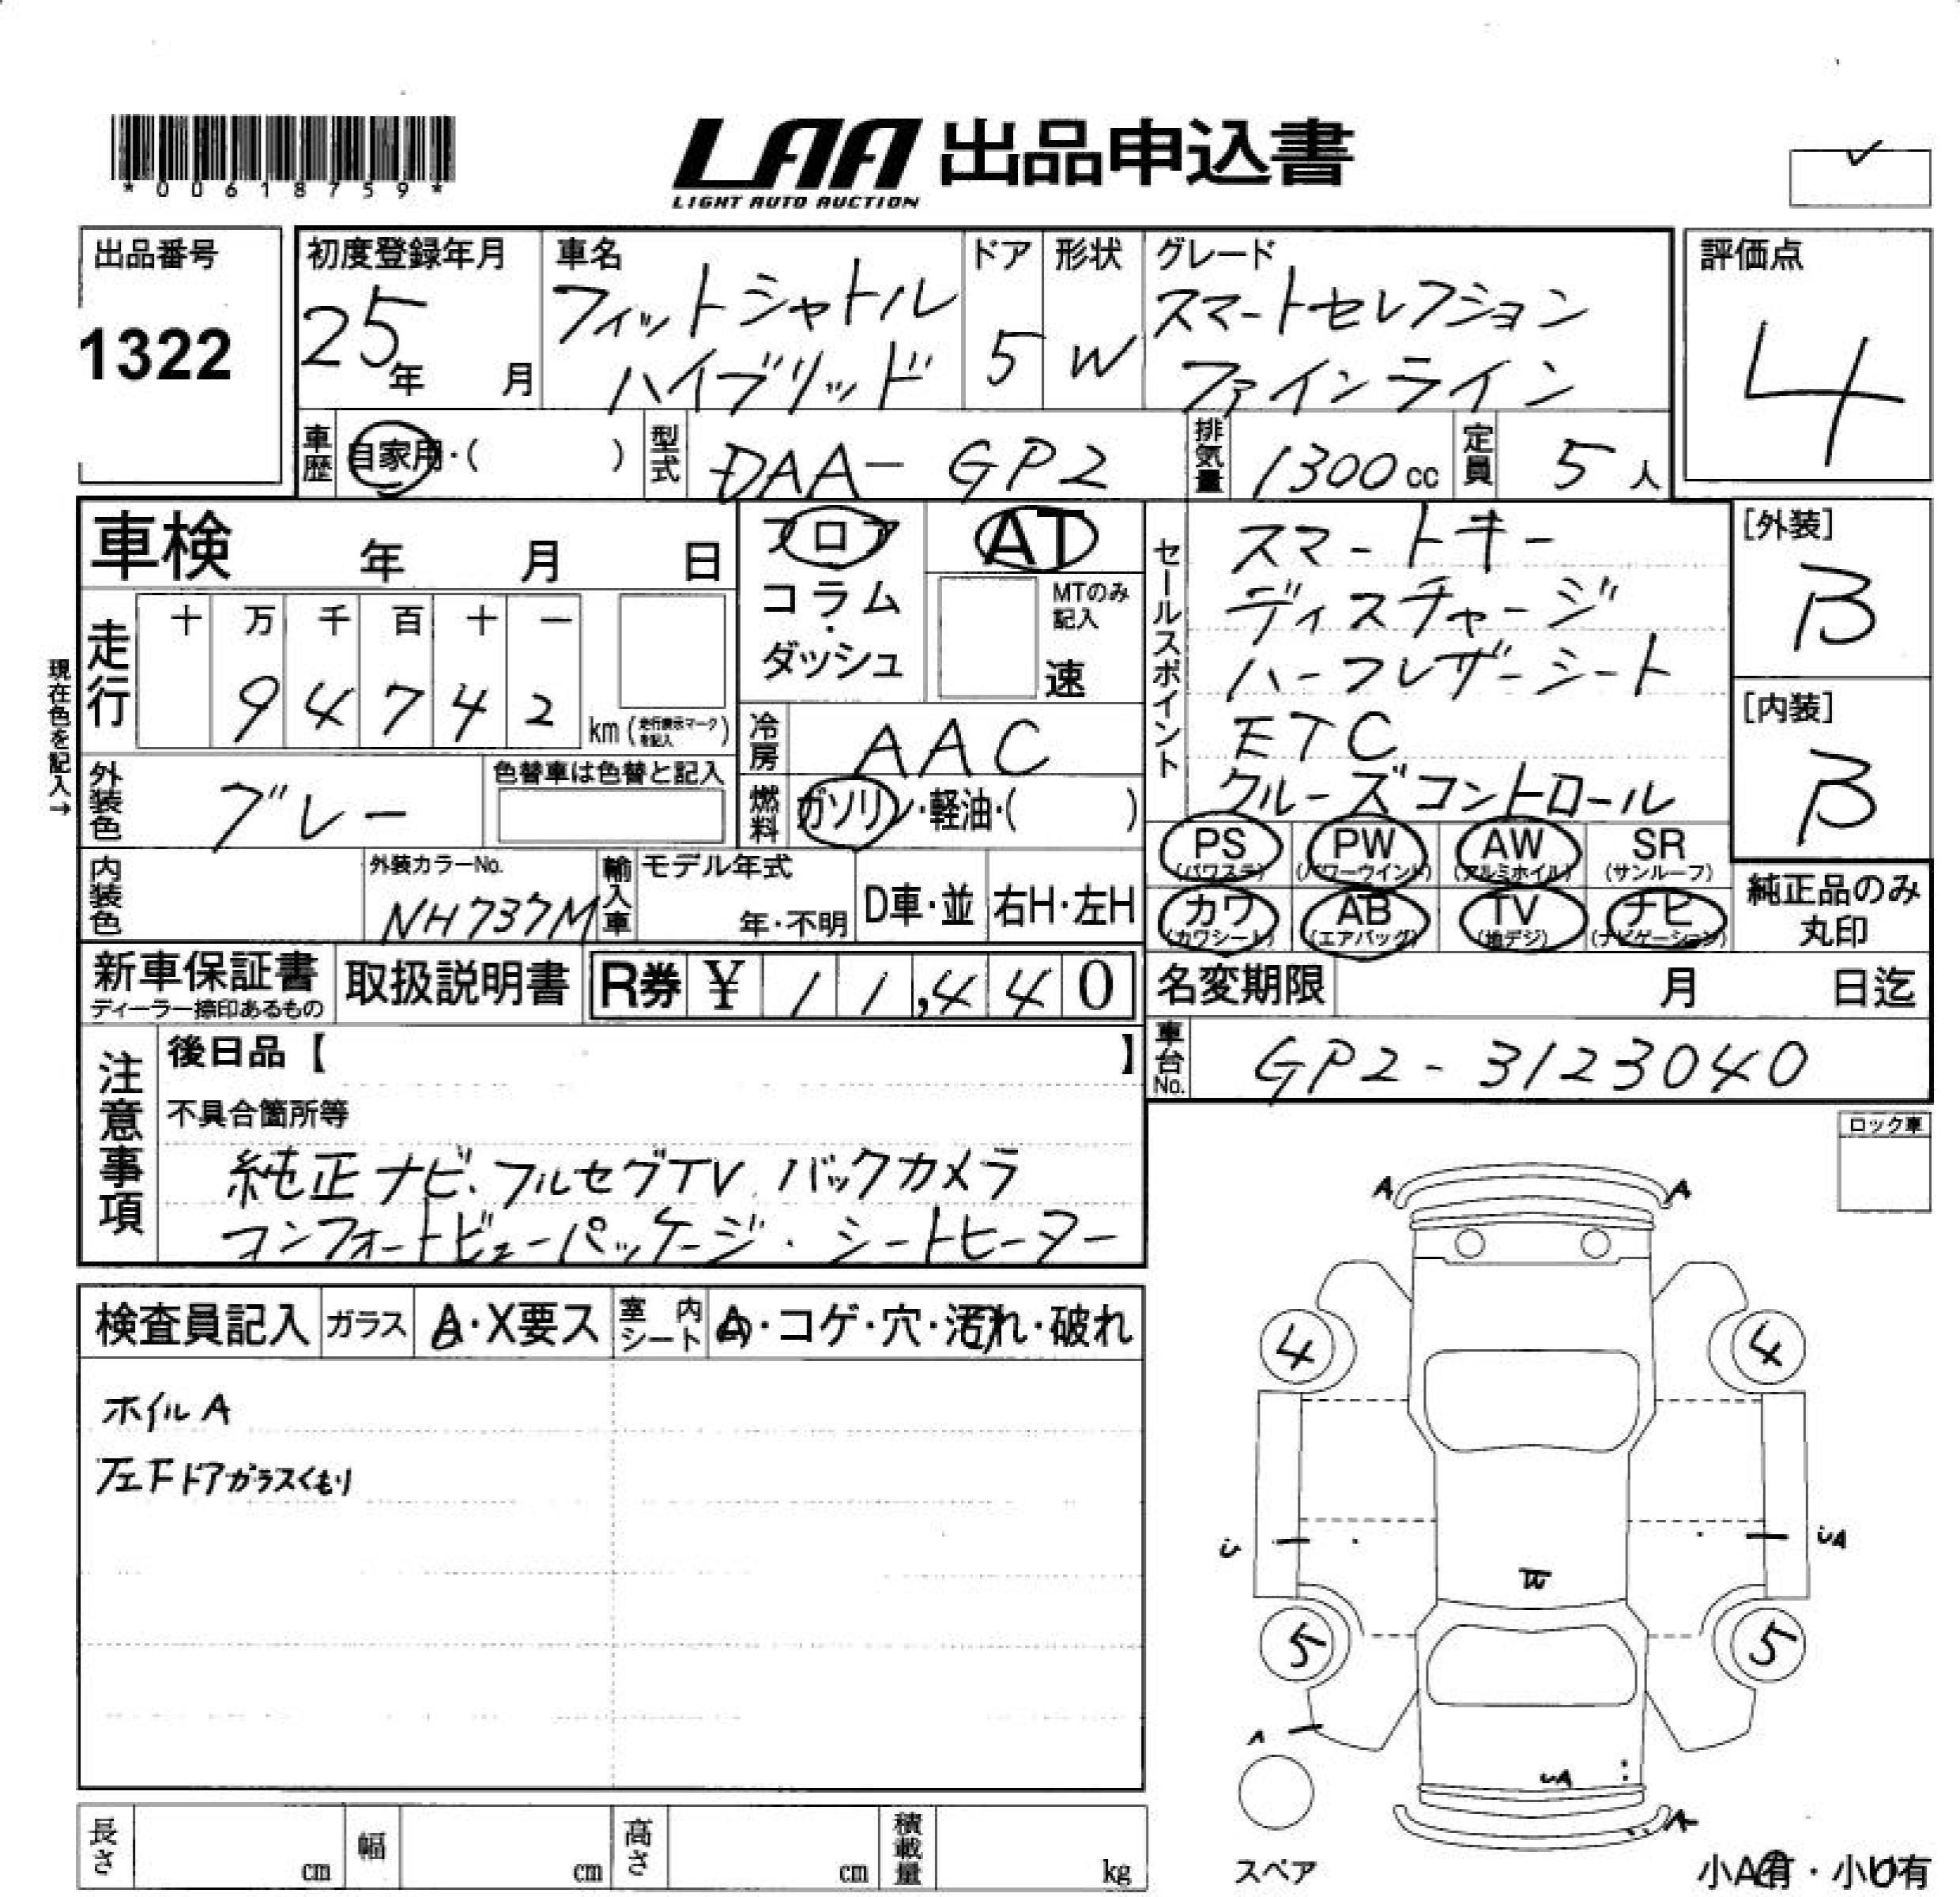 *00618759*
LAA 出品申込書
LIGHT AUTO AUCTION
出品番号 初度登録年月 車名 ドア 形状 グレード 評価点
1322 25年 月 フィットシャトル 5 W スマートセレクション 4
ハイブリッド ファインライン
車歴 自家用・( ) 型式 DAA-GP2 排気量 1300cc 定員 5人
車検 年 月 日 フロア AT セールスポイント スマートキー [外装]
コラム・ダッシュ MTのみ記入 速 ディスチャージ B
走行 十 万 千 百 十 一 ハーフレザーシート
94742 km(走行表示マークを記入) ETC [内装]
現在色を記入→ 冷房 AAC クルーズコントロール B
外装色 グレー 色替車は色替と記入 燃料 ガソリン・軽油・( )
PS(パワステ) PW(パワーウインド) AW(アルミホイル) SR(サンルーフ)
内装色 外装カラーNo. NH737M 輸入車 モデル年式 年・不明 D車・並 右H・左H
カワ(カワシート) AB(エアバッグ) TV(地デジ) ナビ(ナビゲーション) 純正品のみ丸印
新車保証書 ディーラー捺印あるもの 取扱説明書 R券 ¥11,440 名変期限 月 日迄
車台No. GP2-3123040
注意事項 後日品【 】
不具合箇所等
純正ナビ、フルセグTV、バックカメラ
コンフォートビューパッケージ・シートヒーター
ロック車
A A
検査員記入 ガラス A・X要ス 室内シート A・コゲ・穴・汚れ・破れ
4 4
ホイルA
左FドアガラスくもりU UA
5 5
A
UA
A
スペア
長さ cm 幅 cm 高さ cm 積載量 kg
小A有・小U有